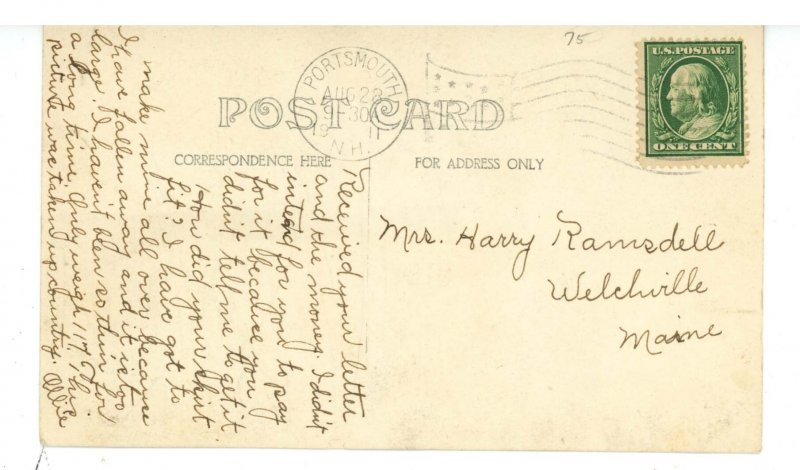 75
U.S. POSTAGE
ONE CENT
PORTSMOUTH
AUG 28
30
19 11
N.H.
POST CARD
CORRESPONDENCE HERE
FOR ADDRESS ONLY
Mrs. Harry Ramsdell
Welchville
Maine
Received your letter
and the money. I didn't
intend for you to pay
for it because you
didn't tell me to get it.
How did your skirt
fit? I have got to
make mine all over because
I have fallen away and it is too
large. I haven't been so thin for
a long time. Only weigh 117. This
picture was taken up country. Allie